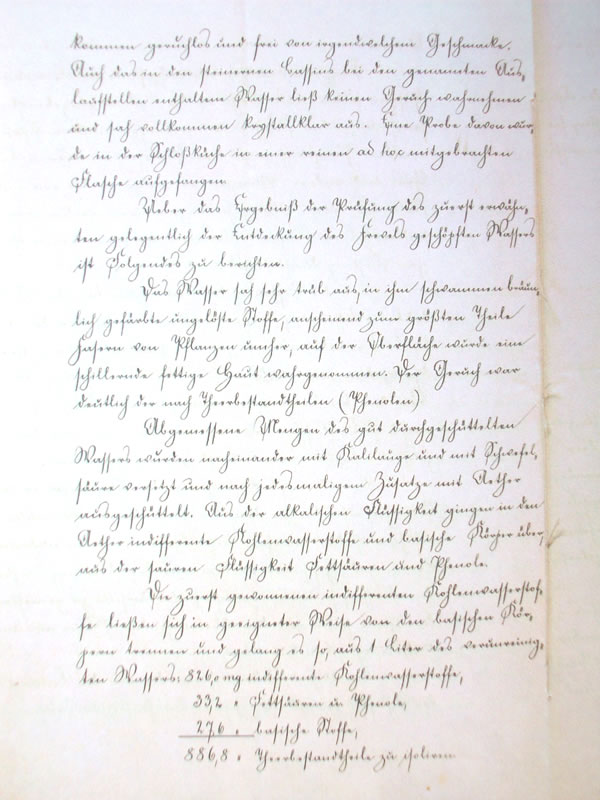 kommen geruchlos und frei von irgendwelchem Geschmacke.
Auch das in den steinernen Bassins bei den genannten Aus-
laufstellen enthaltene Wasser ließ keinen Geruch wahrnehmen
und sah vollkommen krystallklar aus. Eine Probe davon wur-
de in der Schloßküche in einer reinen ad hoc mitgebrachten
Flasche aufgefangen.
Ueber das Ergebniß der Prüfung des zuerst erwähn-
ten gelegentlich der Entdeckung des Frevels geschöpften Wassers
ist Folgendes zu berichten.
Das Wasser sah sehr trüb aus, in ihm schwammen bräun-
lich gefärbte ungelöste Stoffe, anscheinend zum größten Theile
Fasern von Pflanzen umher, auf der Oberfläche wurde eine
schillernde fettige Haut wahrgenommen. Der Geruch war
deutlich der nach Theerbestandtheilen (Phenolen)
Abgemessene Mengen des gut durchgeschüttelten
Wassers wurden nacheinander mit Kalilauge und mit Schwefel-
säure versetzt und nach jedesmaligem Zusatze mit Aether
ausgeschüttelt. Aus der alkalischen Flüssigkeit gingen in den
Aether indifferente Kohlenwasserstoffe und basische Körper über,
aus der sauren Flüssigkeit Fettsäuren und Phenole.
Die zuerst gewonnenen indifferenten Kohlenwasserstof-
fe ließen sich in geeigneter Weise von den basischen Kör-
pern trennen und gelang es so, aus 1 Liter des verunreinig-
ten Wassers: 826,0 mg indifferente Kohlenwasserstoffe,
33,2 " Fettsäuren u. Phenole,
27,6 " basische Stoffe,
886,8 " Theerbestandtheile zu isoliren.